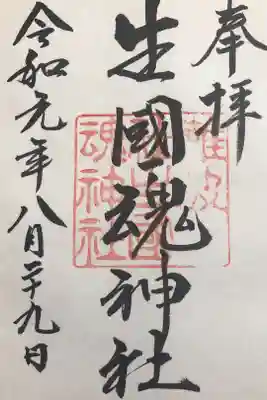 奉拝
生國魂神社
令和元年八月廿九日